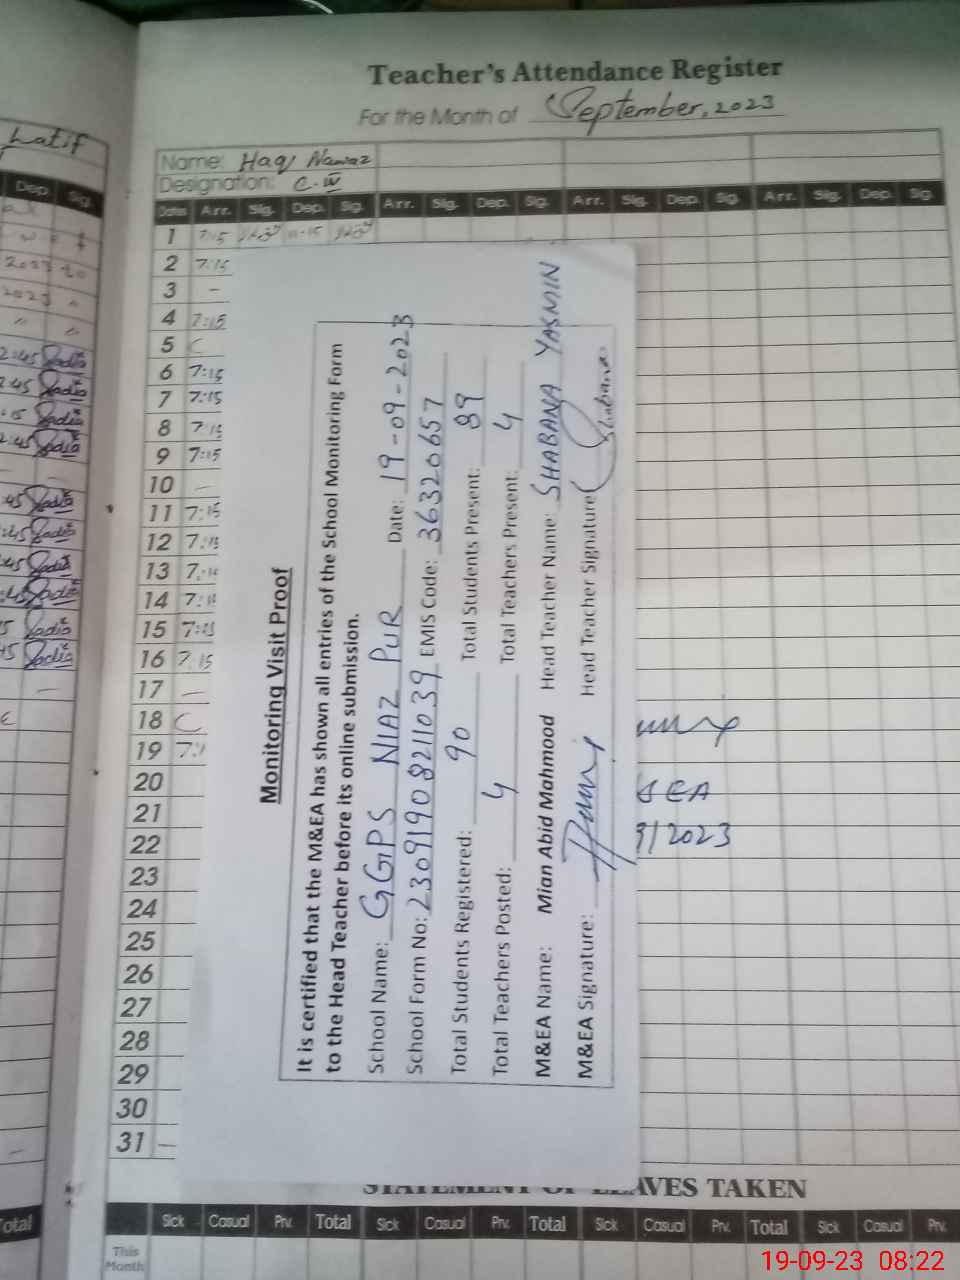 Teacher's Attendance Register
For the Month of September, 2023
Name: Haq Nawaz
Designation: C-IV
Dates Arr. Sig. Dep. Sig. Arr. Sig. Dep. Sig. Arr. Sig. Dep. Sig. Arr. Sig. Dep. Sig.
1 7:15 11-15
2 7:15
3 -
4 7:15
5 C
6 7:15
7 7:15
8 7:15
9 7:15
10 -
11 7:15
12 7:15
13
14
15 7:15
16 7:15
17 -
18 C
19
20
21
22
23
24
25
26
27
28
29
30
31 -
Monitoring Visit Proof
It is certified that the M&EA has shown all entries of the School Monitoring Form
to the Head Teacher before its online submission.
School Name: GGPS NIAZ PUR Date: 19-09-2023
School Form No: 23091908211039 EMIS Code: 36320657
Total Students Registered: 90 Total Students Present: 89
Total Teachers Posted: 4 Total Teachers Present: 4
M&EA Name: Mian Abid Mahmood Head Teacher Name: SHABANA YASMIN
M&EA Signature: Head Teacher Signature: Shabana
EA
9/2023
STATEMENT OF LEAVES TAKEN
Sick Casual Prv. Total Sick Casual Prv. Total Sick Casual Prv. Total Sick Casual Prv.
This
Month
Latif
Dep. Sig.
2023
2023
2:45 Sadia
2:45 Sadia
:15 Sadia
2:45 Sadia
:45 Sadia
:45 Sadia
:45 Sadia
:45 Sadia
5 Sadia
45 Sadia
Total
19-09-23 08:22